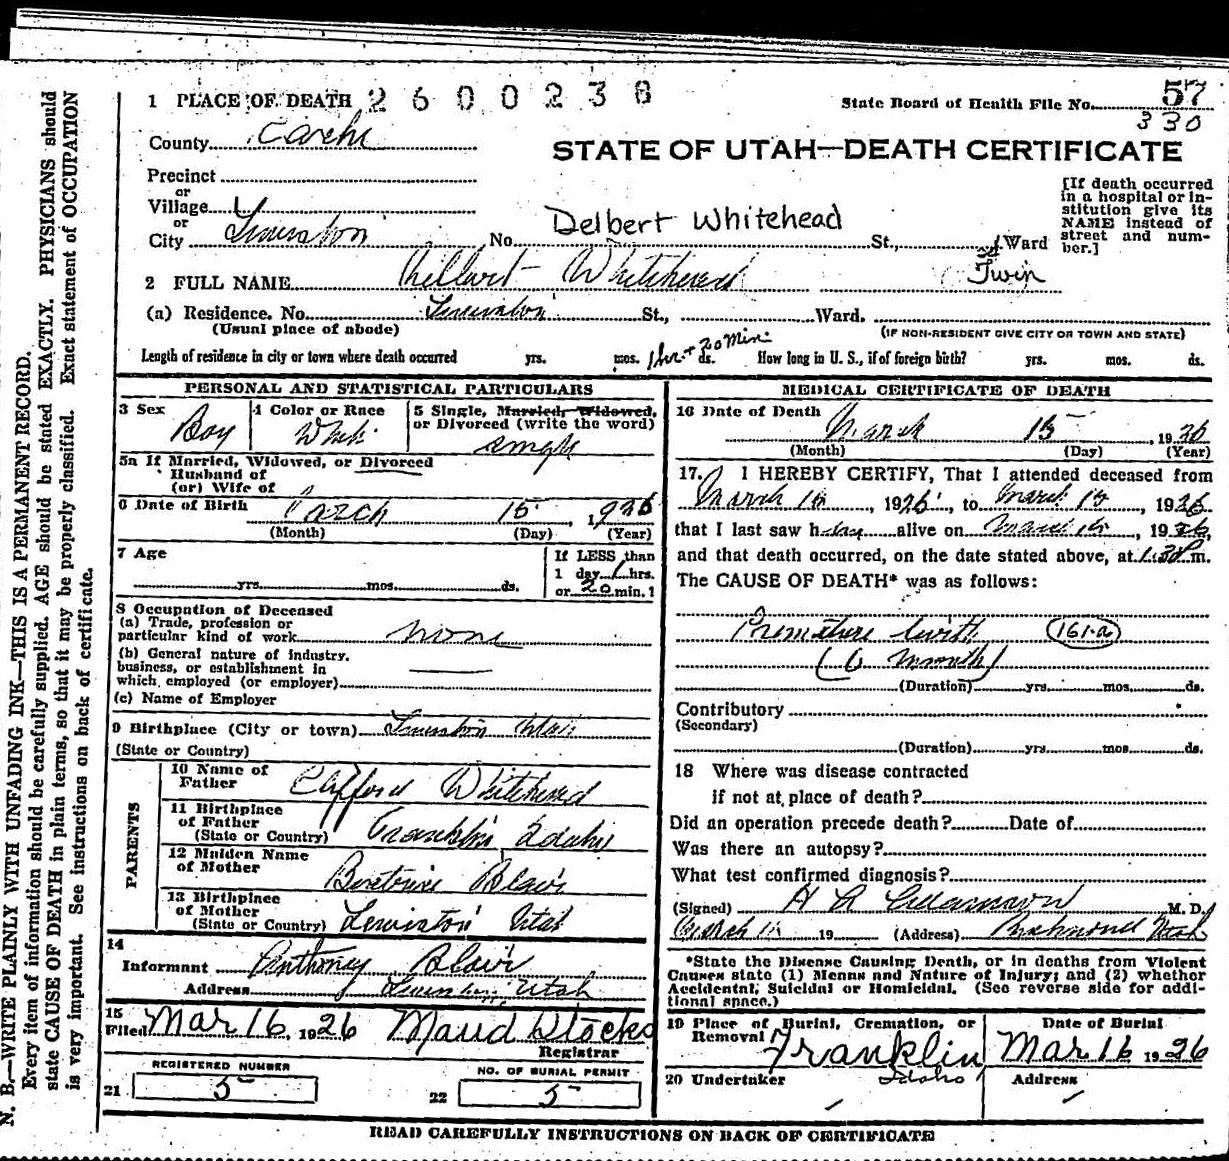 1 PLACE OF DEATH 2600238
State Board of Health File No. 57
330
County Cache
STATE OF UTAH—DEATH CERTIFICATE
Precinct
or
Village
or
City Lewiston No. Delbert Whitehead St., Ward
[If death occurred in a hospital or institution give its NAME instead of street and number.]
2 FULL NAME Whitehead Twin
(a) Residence. No. Lewiston St., Ward.
(Usual place of abode) (IF NON-RESIDENT GIVE CITY OR TOWN AND STATE)
Length of residence in city or town where death occurred yrs. mos. 1 hr + 20 Min. ds. How long in U. S., if of foreign birth? yrs. mos. ds.
PERSONAL AND STATISTICAL PARTICULARS
3 Sex Boy
4 Color or Race White
5 Single, Married, Widowed, or Divorced (write the word) single
5a If Married, Widowed, or Divorced
Husband of
(or) Wife of
6 Date of Birth March 15, 1926
(Month) (Day) (Year)
7 Age
yrs. mos. ds.
If LESS than
1 day 1 hrs.
or 20 min. ?
8 Occupation of Deceased
(a) Trade, profession or
particular kind of work none
(b) General nature of industry,
business, or establishment in
which employed (or employer)
(c) Name of Employer
9 Birthplace (City or town) Lewiston Utah
(State or Country)
PARENTS
10 Name of
Father Clifford Whitehead
11 Birthplace
of Father
(State or Country) Franklin Idaho
12 Maiden Name
of Mother Beatrice Blair
13 Birthplace
of Mother
(State or Country) Lewiston Utah
14
Informant Anthoney Blair
Address Lewiston, Utah
15
Filed Mar 16, 1926 Maud Stocks
Registrar
REGISTERED NUMBER
21 5
NO. OF BURIAL PERMIT
22 5
MEDICAL CERTIFICATE OF DEATH
16 Date of Death
March 15, 1926
(Month) (Day) (Year)
17. I HEREBY CERTIFY, That I attended deceased from
March 15, 1926, to March 15, 1926
that I last saw h alive on March 15, 1926,
and that death occurred, on the date stated above, at 1:30 P m.
The CAUSE OF DEATH* was as follows:
Premature birth 161-a
(6 month)
(Duration) yrs. mos. ds.
Contributory
(Secondary)
(Duration) yrs. mos. ds.
18 Where was disease contracted
if not at place of death?
Did an operation precede death? Date of
Was there an autopsy?
What test confirmed diagnosis?
(Signed) M. D.
March 15 19 (Address) Richmond Utah
*State the Disease Causing Death, or in deaths from Violent
Causes state (1) Means and Nature of Injury; and (2) whether
Accidental, Suicidal or Homicidal. (See reverse side for additional space.)
19 Place of Burial, Cremation, or
Removal Franklin Idaho
Date of Burial
Mar 16 1926
20 Undertaker
Address
READ CAREFULLY INSTRUCTIONS ON BACK OF CERTIFICATE
N. B.—WRITE PLAINLY WITH UNFADING INK—THIS IS A PERMANENT RECORD.
Every item of information should be carefully supplied. AGE should be stated EXACTLY. PHYSICIANS should
state CAUSE OF DEATH in plain terms, so that it may be properly classified. Exact statement of OCCUPATION
is very important. See instructions on back of certificate.